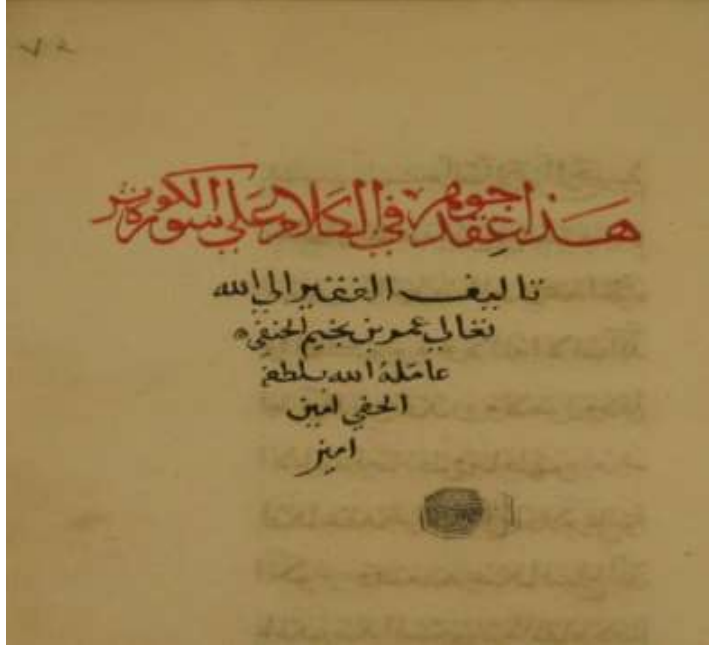 هذا عقد جوهر في الكلام على سورة الكوثر
تاليف الفقير الي الله
تعالي عمر بن نجيم الحنفي
عامله الله بلطفه
الخفي امين
امين